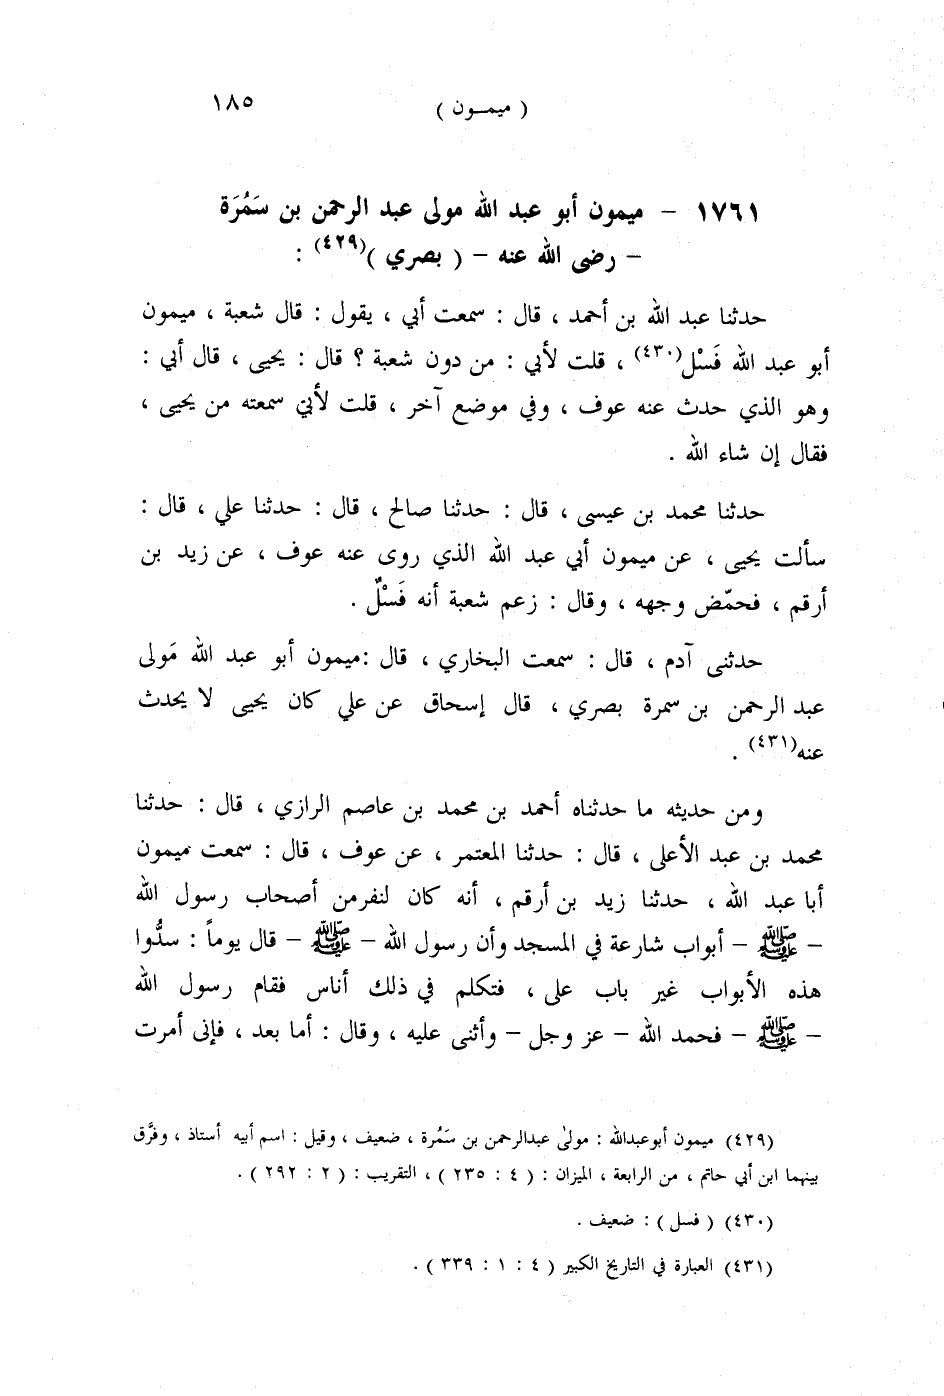 ( ميمــون ) ١٨٥
١٧٦١ – ميمون أبو عبد الله مولى عبد الرحمن بن سَمُرَة
– رضى الله عنه – ( بصري )(٤٢٩) :
حدثنا عبد الله بن أحمد ، قال : سمعت أبي ، يقول : قال شعبة ، ميمون
أبو عبد الله فَسْل(٤٣٠) ، قلت لأبي : من دون شعبة ؟ قال : يحيى ، قال أبي :
وهو الذي حدث عنه عوف ، وفي موضع آخر ، قلت لأبي سمعته من يحيى ،
فقال إن شاء الله .
حدثنا محمد بن عيسى ، قال : حدثنا صالح ، قال : حدثنا علي ، قال :
سألت يحيى ، عن ميمون أبي عبد الله الذي روى عنه عوف ، عن زيد بن
أرقم ، فحمّض وجهه ، وقال : زعم شعبة أنه فَسْلٌ .
حدثنى آدم ، قال : سمعت البخاري ، قال :ميمون أبو عبد الله مَولى
عبد الرحمن بن سمرة بصري ، قال إسحاق عن علي كان يحيى لا يحدث
عنه(٤٣١) .
ومن حديثه ما حدثناه أحمد بن محمد بن عاصم الرازي ، قال : حدثنا
محمد بن عبد الأعلى ، قال : حدثنا المعتمر ، عن عوف ، قال : سمعت ميمون
أبا عبد الله ، حدثنا زيد بن أرقم ، أنه كان لنفرمن أصحاب رسول الله
– ﷺ – أبواب شارعة في المسجد وأن رسول الله – ﷺ – قال يوماً : سدُّوا
هذه الأبواب غير باب على ، فتكلم في ذلك أناس فقام رسول الله
– ﷺ – فحمد الله – عز وجل – وأثنى عليه ، وقال : أما بعد ، فإنى أمرت
(٤٢٩) ميمون أبوعبدالله : مولىٰ عبدالرحمن بن سَمُرة ، ضعيف ، وقيل : اسم أبيه أستاذ ، وفرَّق
بينهما ابن أبي حاتم ، من الرابعة ، الميزان : ( ٤ : ٢٣٥ ) ، التقريب : ( ٢ : ٢٩٢ ) .
(٤٣٠) ( فسل ) : ضعيف .
(٤٣١) العبارة في التاريخ الكبير ( ٤ : ١ : ٣٣٩ ) .